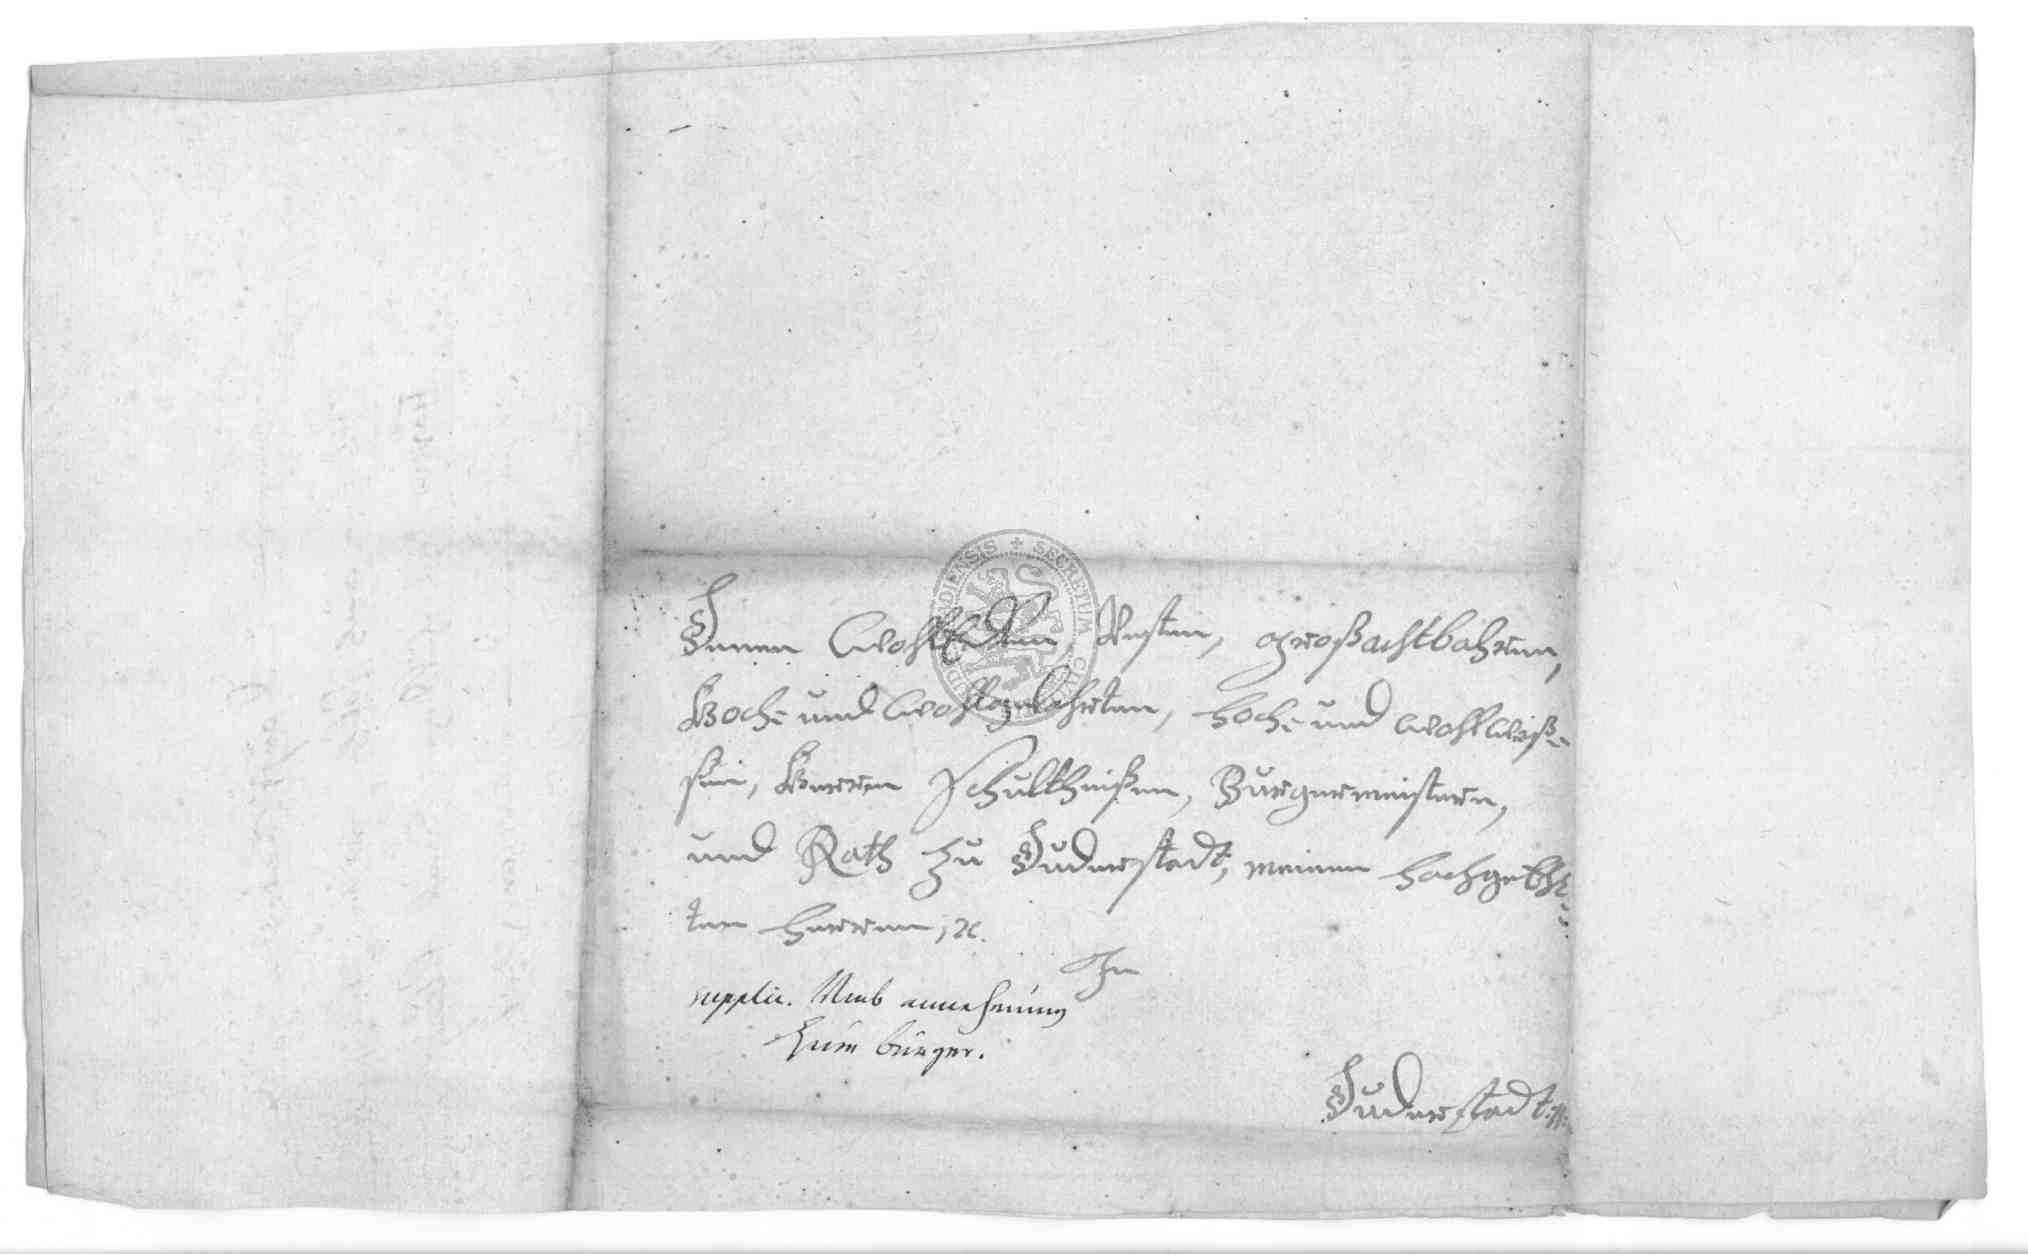 Denen WohlEdlen, Vesten, großachtbahren,
Hoch- und Wohlgelahrten, hoch- und wohlweiß-
sen, Herren Schultheißen, Burgermeistern,
und Rath zu Duderstadt, meinen hochgeEhr-
ten herren, ꝛc.
In
supplic. Umb annehmung
zum bürger.
Duderstadt